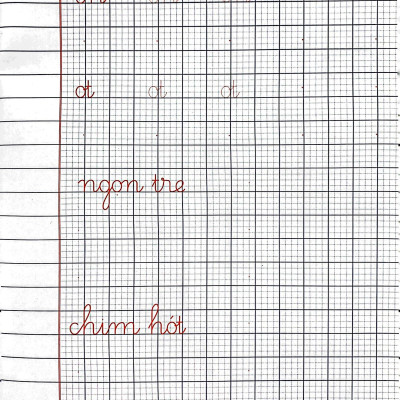 ot ot ot
ngon tre
chim hót